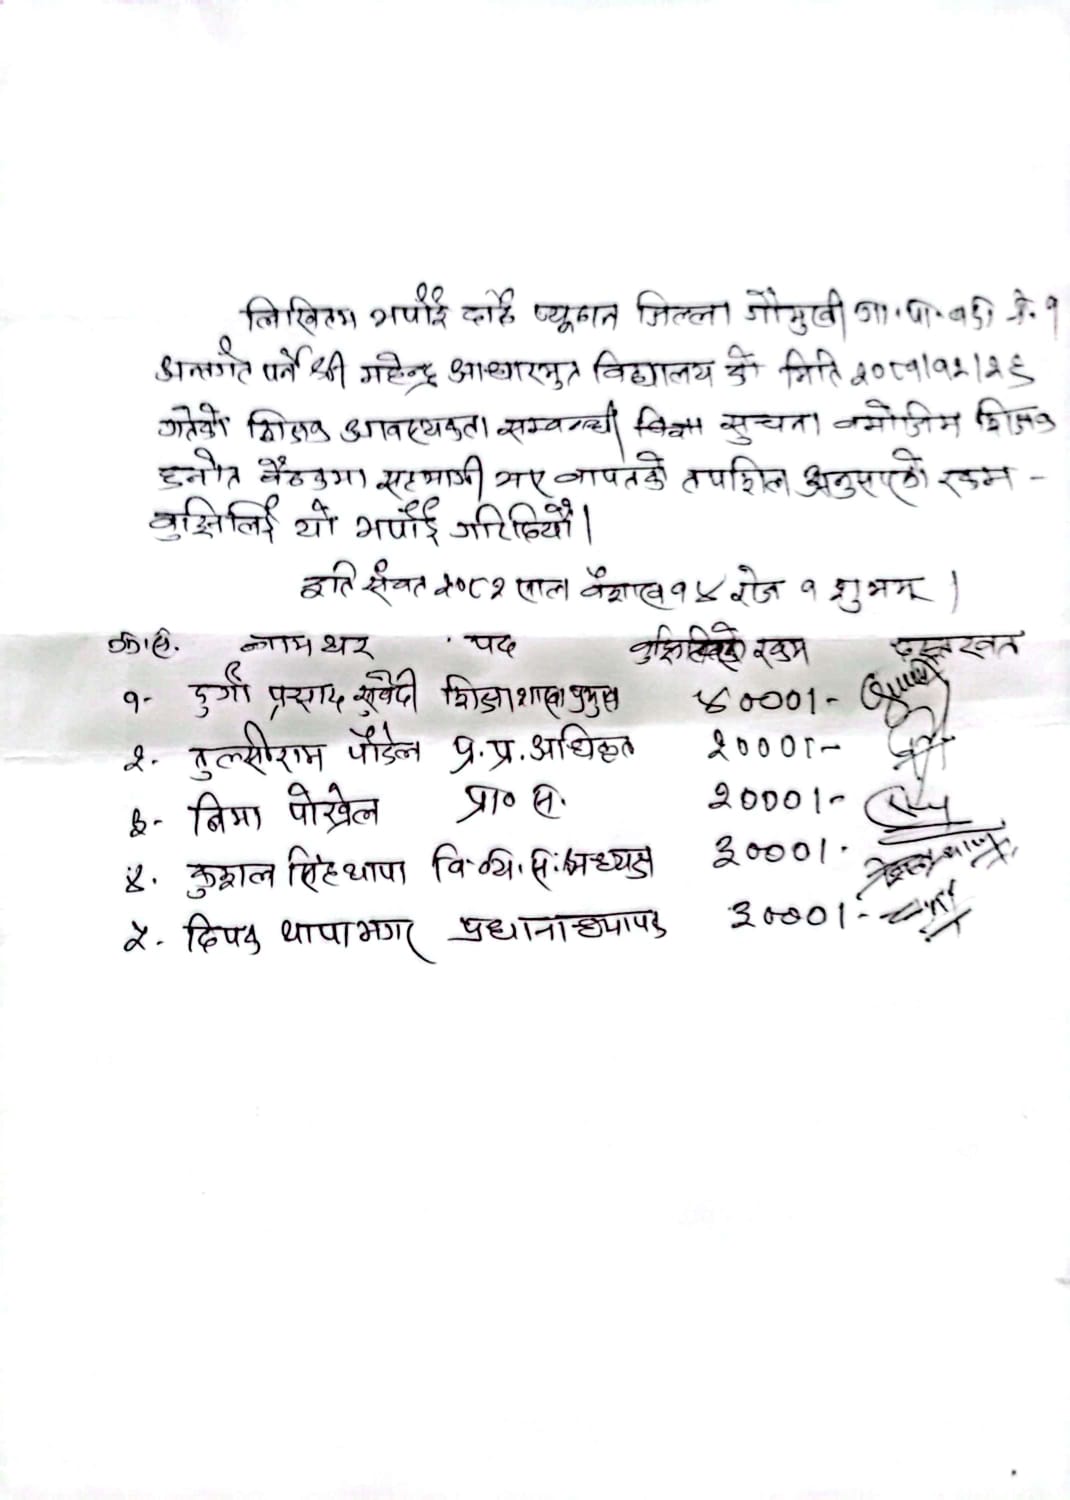 लिखितम भर्पाई कार्ड प्यूठान जिल्ला गौमुखी गा.पा.वडा नं. १
अन्तर्गत पर्ने श्री महेन्द्र आधारभुत विद्यालय को मिति २०८१/१२/२६
गतेको शिक्षक आवश्यकता सम्बन्धी सुचना बमोजिम शिक्षक
छनोट बैठकमा सहभागी भए बापतको तपशिल अनुसारको रकम -
बुझिलिई यो भर्पाई गरिदियौं।
इति संवत २०८२ साल वैशाख १४ रोज १ शुभम् ।
क्र.सं. नाम थर पद बुझिलिएको रकम दस्तखत
१- दुर्गा प्रसाद सुवेदी शिक्षा शाखा प्रमुख ४०००।-
२- तुलसीराम पौडेल प्र.प्र.अधिकृत २०००।-
३- बिमा पोख्रेल प्रा० स. २०००।-
४. कुशल सिंह थापा वि.व्य.स.अध्यक्ष ३०००।-
५- दिपक थापा मगर प्रधानाध्यापक ३०००।-